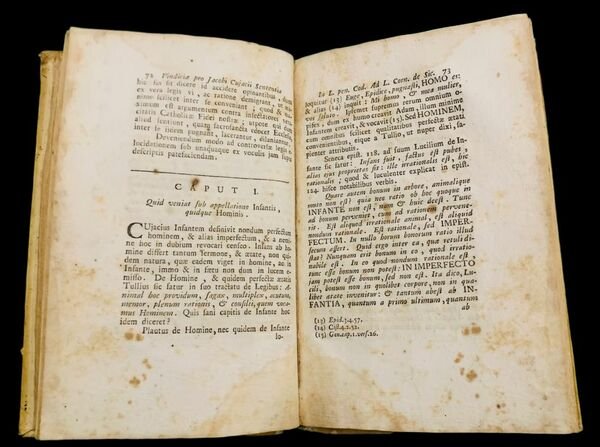 72 Vindiciæ pro Jacobi Cujacii Sententia
hic sis sit dicere id accidere opinantibus, dum
ex vera legis vi, ac ratione demigrant, ut
nimo scilicet inter se conveniant; quod
simum est argumentum contra infectatores
citatis Catholicæ Fidei nostræ; utpotè qui dum
aliud sentiunt, quàm sacrosancta edocet Ecclesia,
inter se iidem pugnant, lacerantur, dilaniantur.
Deveniendum modo ad controversæ legis
lucidationem sub unaquaque ex voculis jam supra
descriptis patefaciendam.
CAPUT I.
Quid veniat sub appellatione Infantis,
quidque Hominis.
CUjacius Infantem definivit nondum perfectum
hominem, & aliàs imperfectum, & a nemi-
ne hoc in dubium revocari censeo. Infans ab ho-
mine differt tantum sermone, & ætate, non qui-
dem natura, quæ eadem viget in homine, ac in
Infante, immò & in fœtu non dum in lucem e-
misso. De Homine, & quidem perfectæ ætatis
Tullius sic fatur in suo tractatu de Legibus: A-
nimal hoc providum, sagax, multiplex, acutum,
memor, plenum rationis, & consilii, quem voca-
mus Hominem. Quis sani capitis de Infante hoc
idem diceret?
Plautus de Homine, nec quidem de Infante
lo-
In L. pen. Cod. Ad L. Corn. de Sic. 73
loquitur (13) Euge, Epidice, pugnasti, HOMO es:
& aliàs (14) inquit: Mi homo, & mea mulier,
vos saluto. Ipsemet supremus rerum omnium o-
pifex, dum ex homo creavit Adam, illum minimo
Infantem creavit, & vocavit (15) Sed HOMINEM,
cum omnibus scilicet qualitatibus perfectæ ætati
convenientibus, eique a Tullio, ut nuper dixi, sa-
pienter attributis.
Seneca epist. 118. ad suum Lucilium de Infan-
te sic fatur: Infans fuit, factus est pubes;
alia ejus proprietas fit: ille irrationalis est, hic
rationalis; quod & luculenter explicat in epist.
124. hisce notabilibus verbis.
Quare autem bonum in arbore, animalique
muto non est? quia nec ratio ob hoc quoque in
INFANTE non est, nam & huic deest. Tunc
ad bonum perveniet, cum ad rationem pervene-
rit. Est aliquod irrationale animal, est aliquid
nondum rationale. Est rationale, sed IMPER-
FECTUM. In nullo horum bonorum ratio illud
secum affert. Quid ergo inter ea, quæ retuli dis-
tat? Nunquam erit bonum in eo, quod irratio-
nabile est. In eo quod nondum rationale est
tunc esse bonum non potest: IN IMPERFECTO
jam potest esse bonum, sed non est. Ita dico, Lu-
cili, bonum non in quolibet corpore, non in qua-
libet ætate invenitur: & tantum abest ab IN-
FANTIA, quantum a primo ultimum, quantum
ab
(13) Epid. 3. 4. 57.
(14) Cist. 4. 2. 52.
(15) Gen. cap. 1. vers. 26.